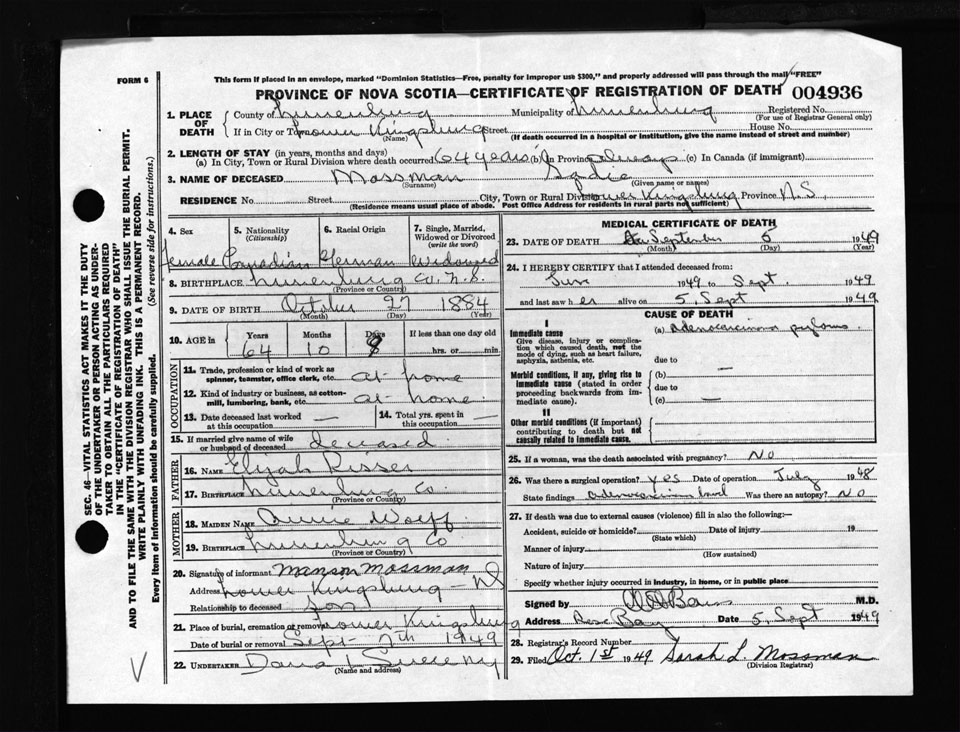 This form if placed in an envelope, marked "Dominion Statistics—Free, penalty for improper use $300," and properly addressed will pass through the mail "FREE"
FORM 6
PROVINCE OF NOVA SCOTIA—CERTIFICATE OF REGISTRATION OF DEATH 004936
1. PLACE OF DEATH
County of Lunenburg Municipality of Lunenburg Registered No.
(For use of Registrar General only)
If in City or Town Lower Kingsburg Street House No.
(Name) (If death occurred in a hospital or institution, give the name instead of street and number)
2. LENGTH OF STAY (in years, months and days)
(a) In City, Town or Rural Division where death occurred 64 years (b) In Province always (c) In Canada (if immigrant)
3. NAME OF DECEASED Mossman Sadie
(Surname) (Given name or names)
RESIDENCE No. Street City, Town or Rural Division Lower Kingsburg Province N.S.
(Residence means usual place of abode. Post Office Address for residents in rural parts not sufficient)
4. Sex 5. Nationality (Citizenship) 6. Racial Origin 7. Single, Married, Widowed or Divorced (write the word)
female Canadian German widowed
8. BIRTHPLACE Lunenburg Co. N.S.
(Province or Country)
9. DATE OF BIRTH October 27 1884
(Month) (Day) (Year)
10. AGE in Years Months Days If less than one day old
64 10 hrs. or min.
OCCUPATION
11. Trade, profession or kind of work as spinner, teamster, office clerk, etc. at home
12. Kind of industry or business, as cotton-mill, lumbering, bank, etc. at home
13. Date deceased last worked at this occupation — 14. Total yrs. spent in this occupation —
15. If married give name of wife or husband of deceased deceased
FATHER
16. NAME Elijah Risser
17. BIRTHPLACE Lunenburg Co.
(Province or Country)
MOTHER
18. MAIDEN NAME Annie Wolff
19. BIRTHPLACE Lunenburg Co
(Province or Country)
20. Signature of informant Manson Mossman
Address Lower Kingsburg — NS
Relationship to deceased son
21. Place of burial, cremation or removal Lower Kingsburg
Date of burial or removal Sept 7th 1949
22. UNDERTAKER Dana L
(Name and address)
MEDICAL CERTIFICATE OF DEATH
23. DATE OF DEATH September 5 1949
(Month) (Day) (Year)
24. I HEREBY CERTIFY that I attended deceased from
June 1949 to Sept. 1949
and last saw her alive on 5, Sept 1949
CAUSE OF DEATH
I
Immediate cause
Give disease, injury or complication which caused death, not the mode of dying, such as heart failure, asphyxia, asthenia, etc.
(a) Adenocarcinoma
due to
Morbid conditions, if any, giving rise to immediate cause (stated in order proceeding backwards from immediate cause).
(b) —
due to
(c) —
II
Other morbid conditions (if important) contributing to death but not causally related to immediate cause.
25. If a woman, was the death associated with pregnancy? No
26. Was there a surgical operation? yes Date of operation July 1948
State findings adenocarcinoma bowel Was there an autopsy? No
27. If death was due to external causes (violence) fill in also the following:—
Accident, suicide or homicide? Date of injury 19
(State which)
Manner of injury
(How sustained)
Nature of injury
Specify whether injury occurred in industry, in home, or in public place
Signed by M.D.
Address Rose Bay Date 5, Sept 1949
28. Registrar's Record Number
29. Filed Oct. 1st 1949 Sarah L. Mossman
(Division Registrar)
SEC. 46—VITAL STATISTICS ACT MAKES IT THE DUTY
OF THE UNDERTAKER OR PERSON ACTING AS UNDERTAKER
TO OBTAIN ALL THE PARTICULARS REQUIRED
IN THE "CERTIFICATE OF REGISTRATION OF DEATH"
AND TO FILE THE SAME WITH THE DIVISION REGISTRAR WHO SHALL ISSUE THE BURIAL PERMIT.
WRITE PLAINLY WITH UNFADING INK. THIS IS A PERMANENT RECORD.
Every item of information should be carefully supplied. (See reverse side for instructions.)